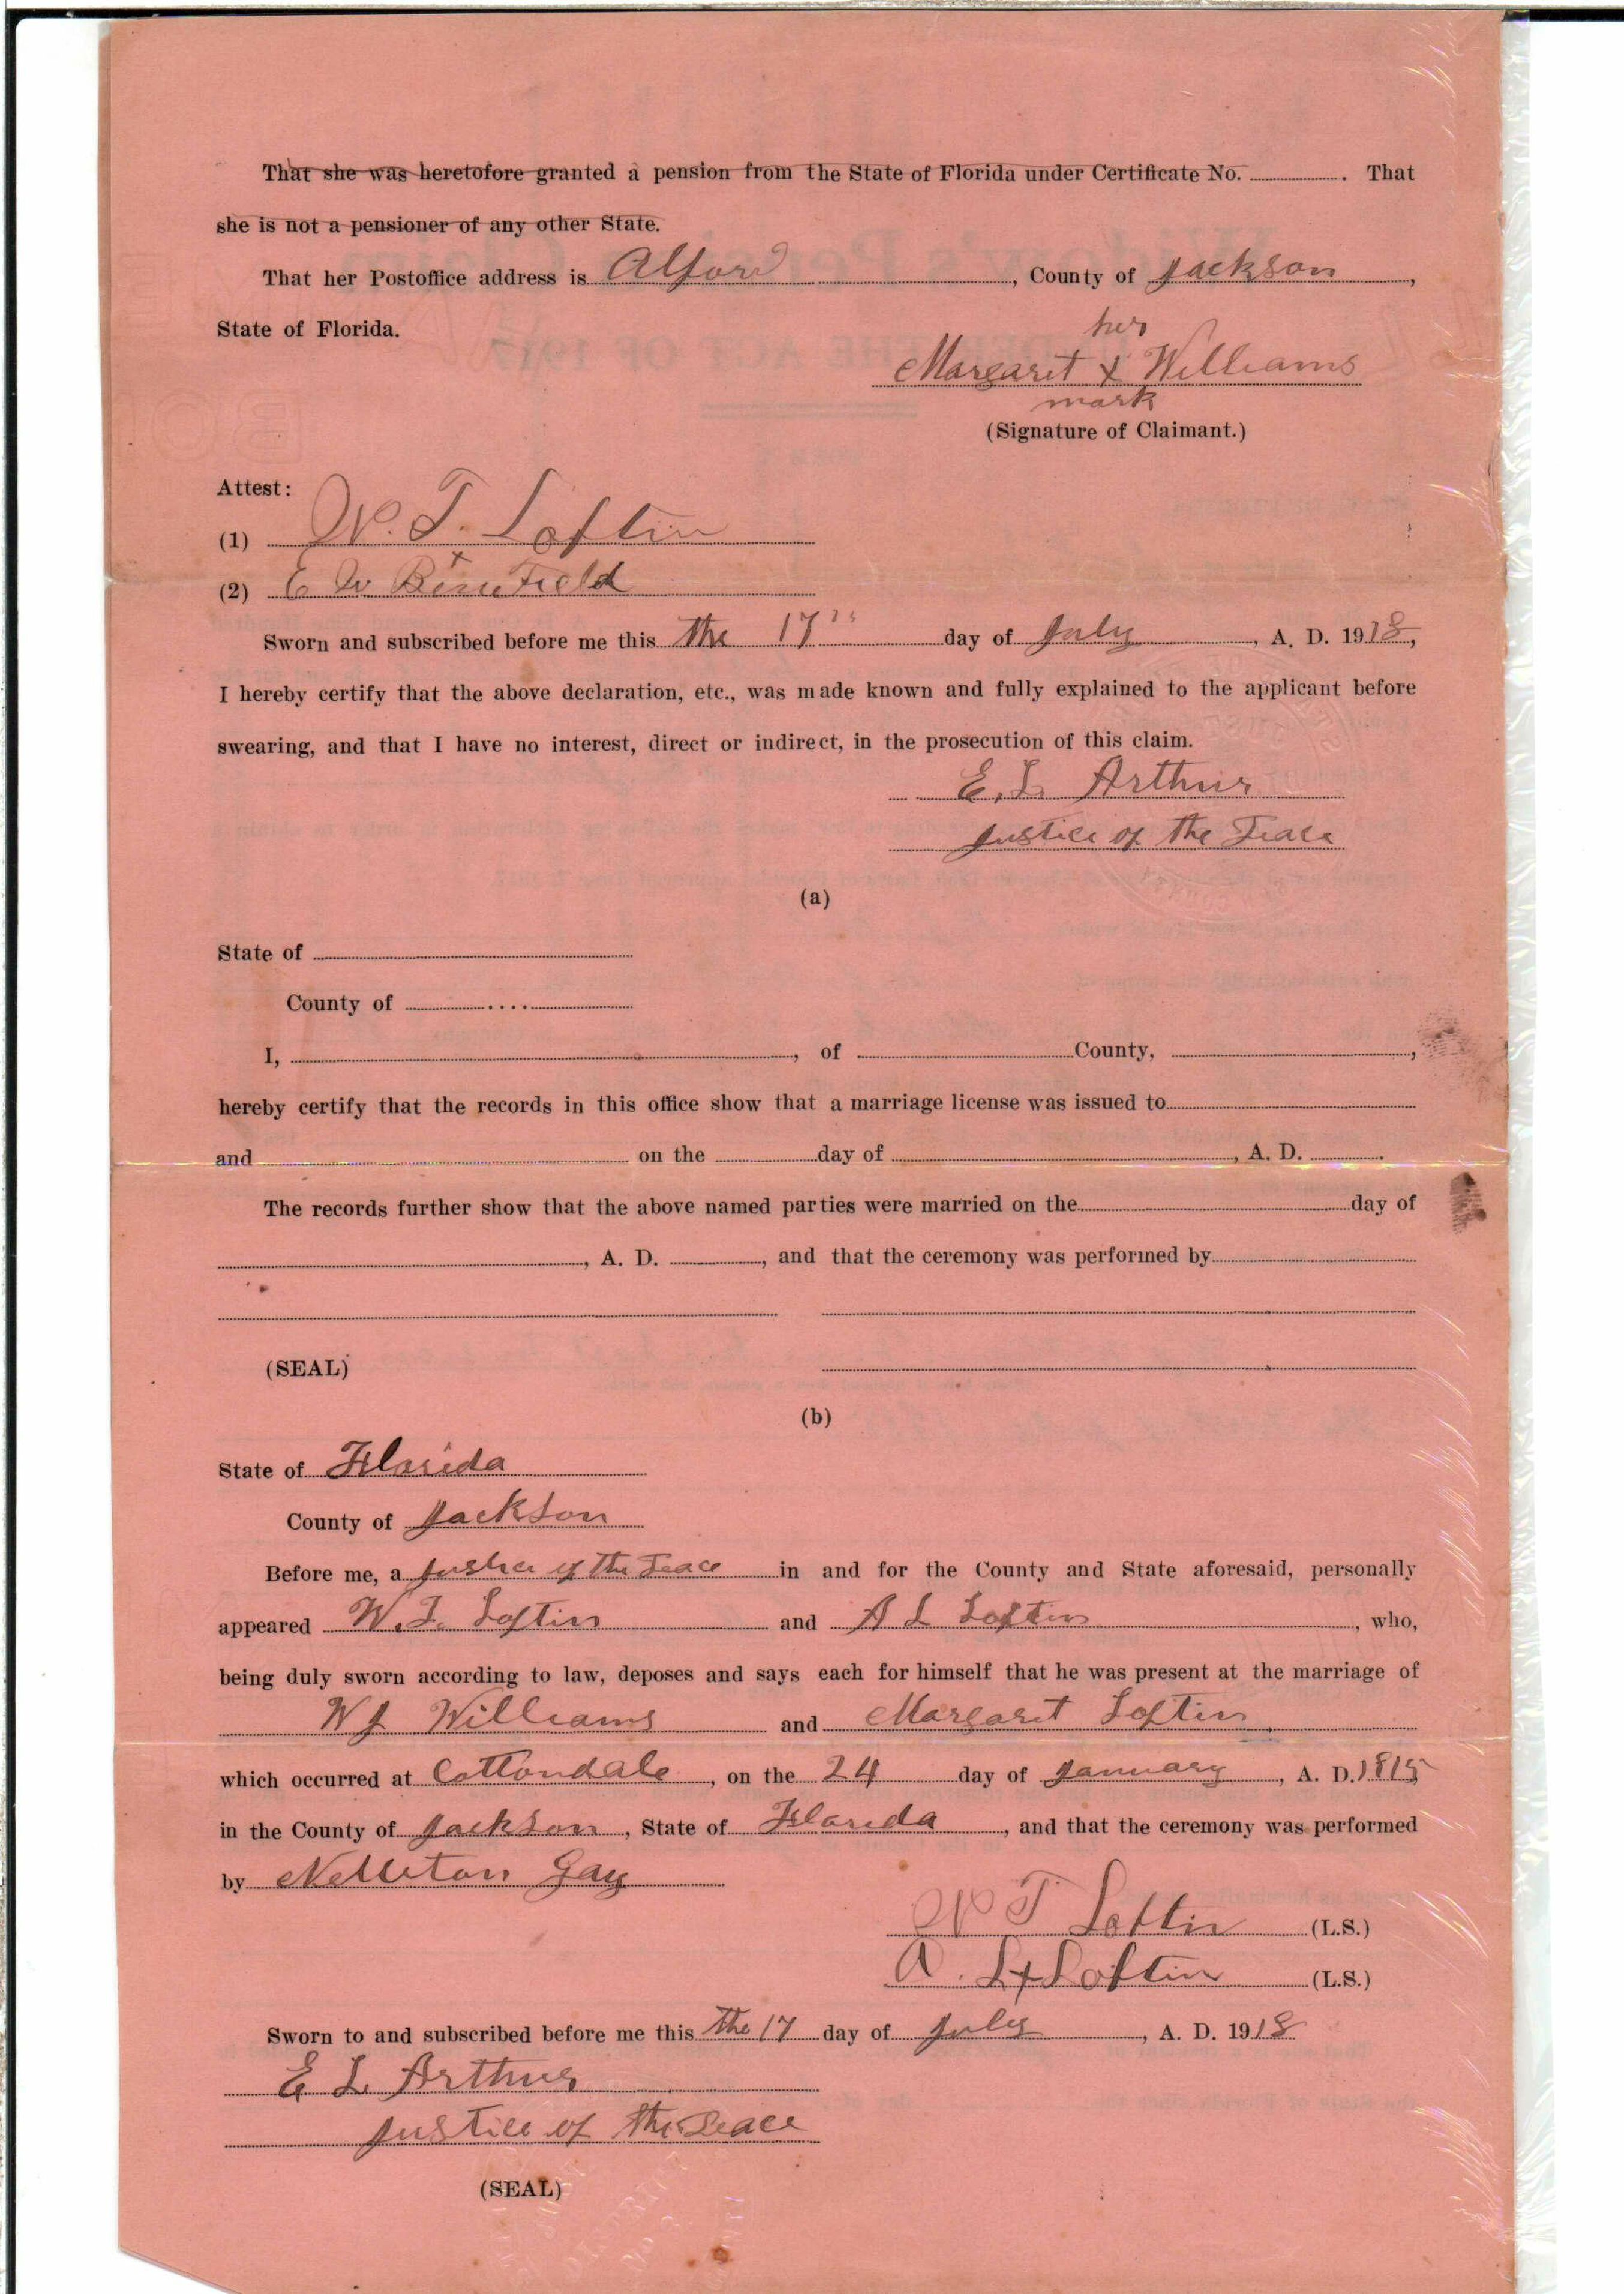 That she was heretofore granted a pension from the State of Florida under Certificate No. . That
she is not a pensioner of any other State.
That her Postoffice address is Alford , County of Jackson ,
State of Florida.
her
Margaret x Williams
mark
(Signature of Claimant.)
Attest:
(1) W. T. Loftin
(2) E W
Sworn and subscribed before me this the 17th day of July , A. D. 1918,
I hereby certify that the above declaration, etc., was made known and fully explained to the applicant before
swearing, and that I have no interest, direct or indirect, in the prosecution of this claim.
E. L. Arthur
Justice of the Peace
(a)
State of
County of
I, , of County, ,
hereby certify that the records in this office show that a marriage license was issued to
and on the day of , A. D. .
The records further show that the above named parties were married on the day of
, A. D. , and that the ceremony was performed by
(SEAL)
(b)
State of Florida
County of Jackson
Before me, a Justice of the Peace in and for the County and State aforesaid, personally
appeared W. T. Loftin and A L Loftin , who,
being duly sworn according to law, deposes and says each for himself that he was present at the marriage of
W J Williams and Margaret Loftin
which occurred at Cottondale , on the 24 day of January , A. D.
in the County of Jackson , State of Florida , and that the ceremony was performed
by Gay
W T Loftin (L.S.)
A. L x Loftin (L.S.)
Sworn to and subscribed before me this the 17 day of July , A. D. 1918
E L Arthur
Justice of the Peace
(SEAL)